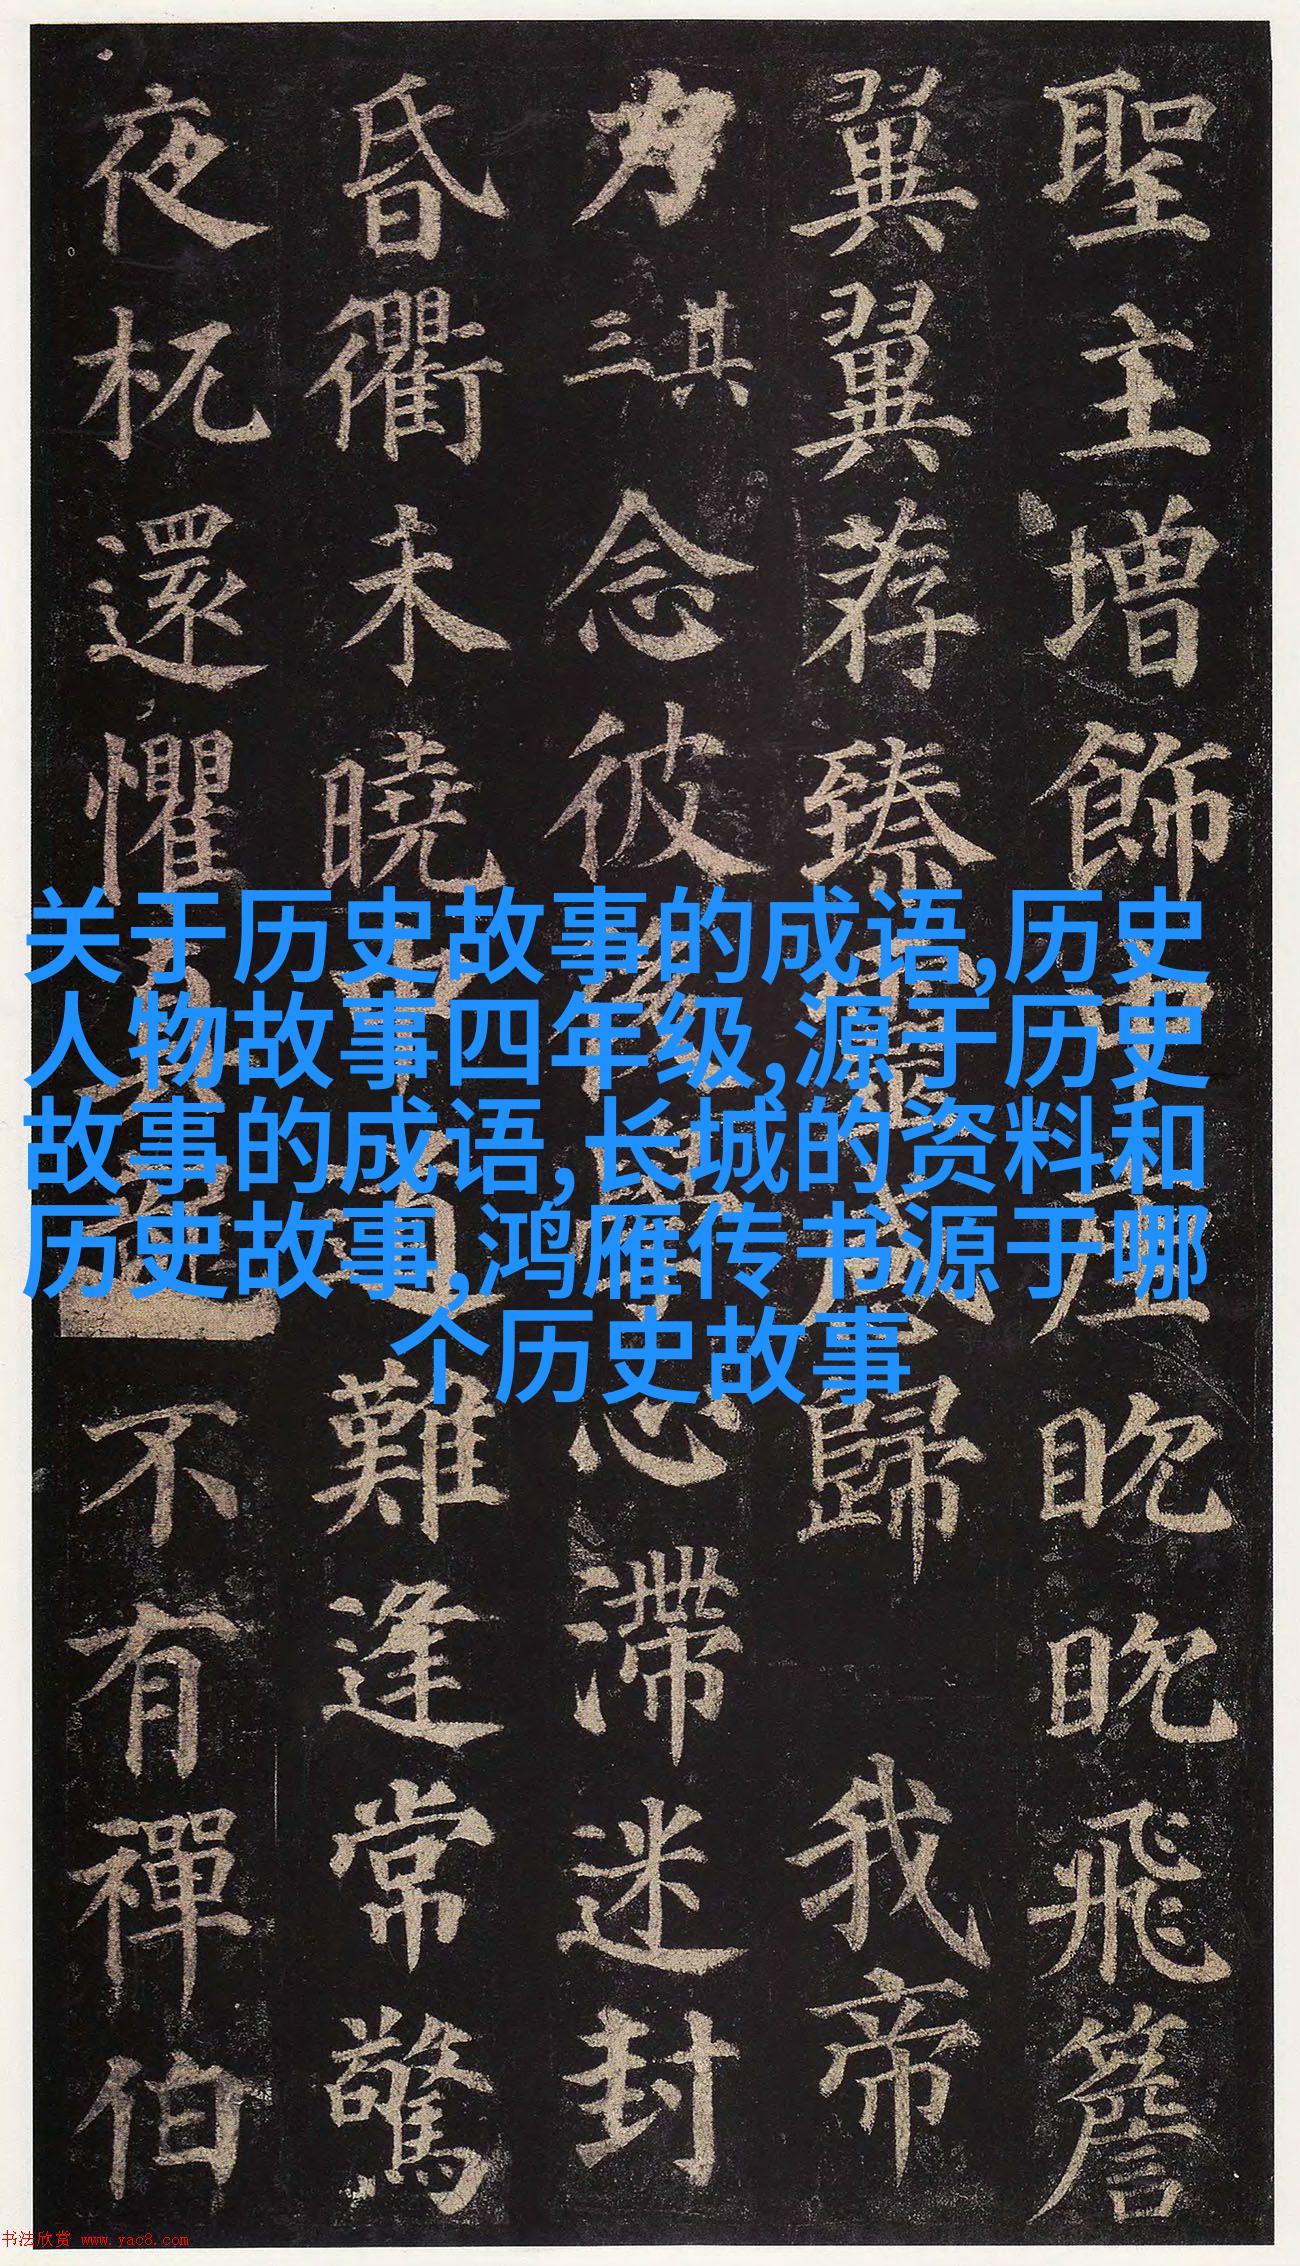 聖主增飾眈眈飛簷
翼翼荐臻歸我帝
力其三念彼心滯迷封
昏衢未曉難逢常驚
夜杌還懼不有禪伯
关于历史故事的成语,历史
人物故事四年级,源于历史
故事的成语,长城的资料和
历史故事,鸿雁传书源于哪
个历史故事
书法欣赏 www.yac8.com